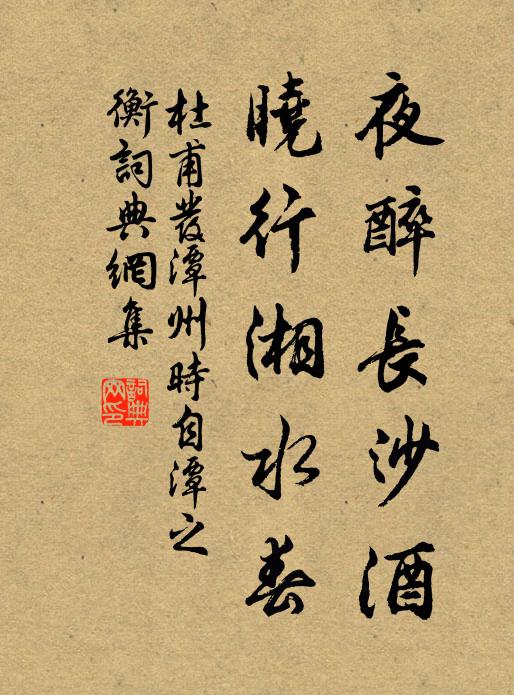 夜醉長沙酒
曉行湘水春
杜甫發潭州時自潭之
衡詞典網集
詞典網印